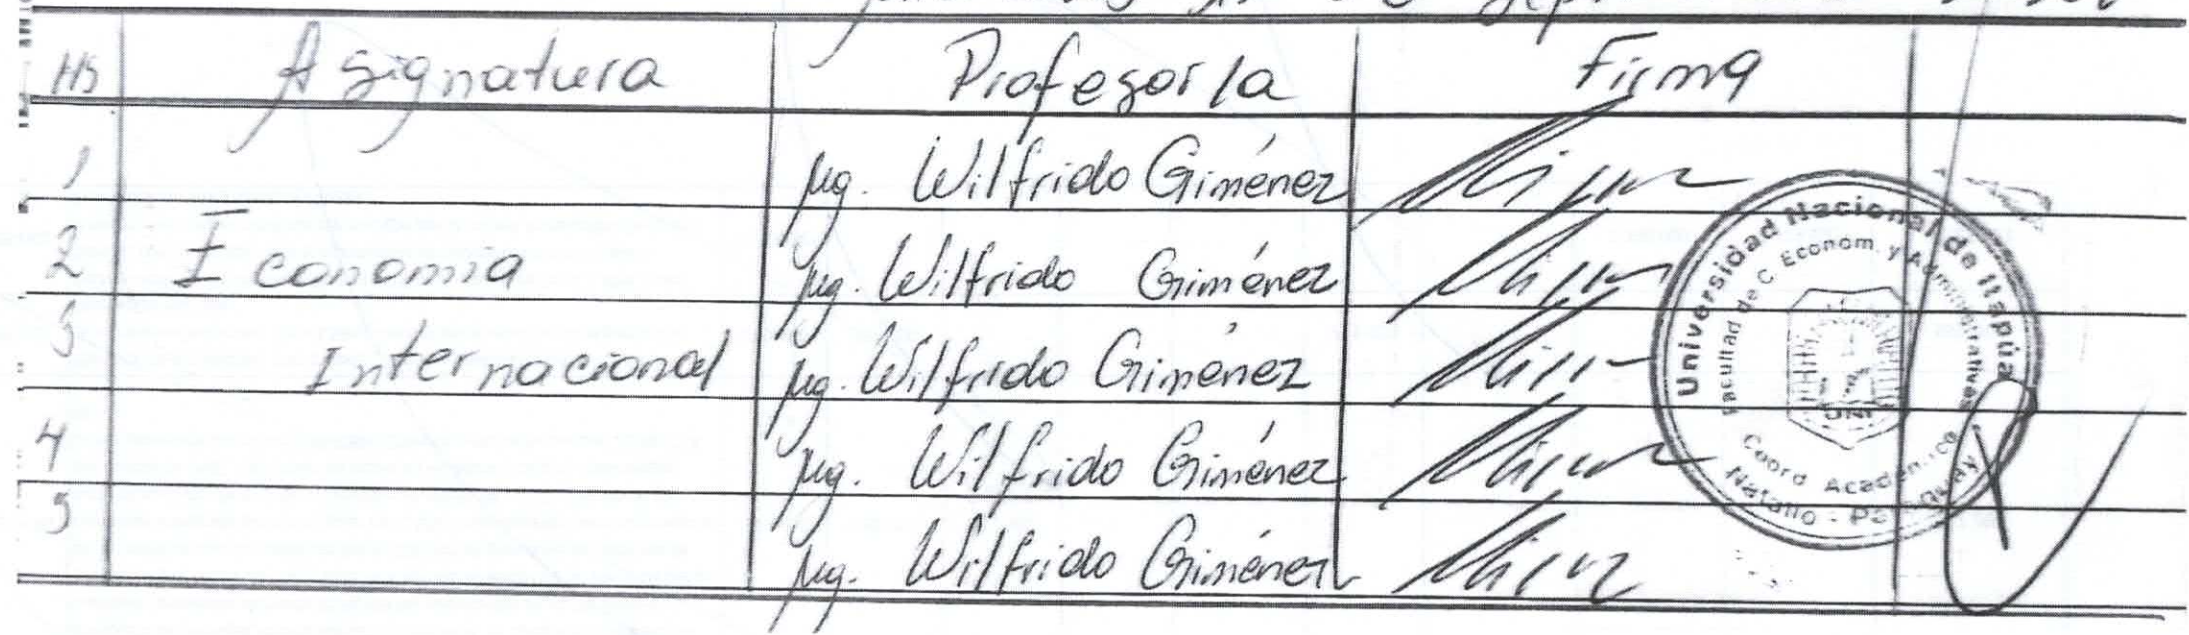 Hs Asignatura Profesor/a Firma
1 Mg. Wilfrido Giménez
2 Economia Mg. Wilfrido Giménez
3 Internacional Mg. Wilfrido Giménez
4 Mg. Wilfrido Giménez
5 Mg. Wilfrido Giménez
Universidad Nacional de Itapúa
Facultad de C. Econom. y Administrativas
UNI
Coord Academica
Natalio - Paraguay